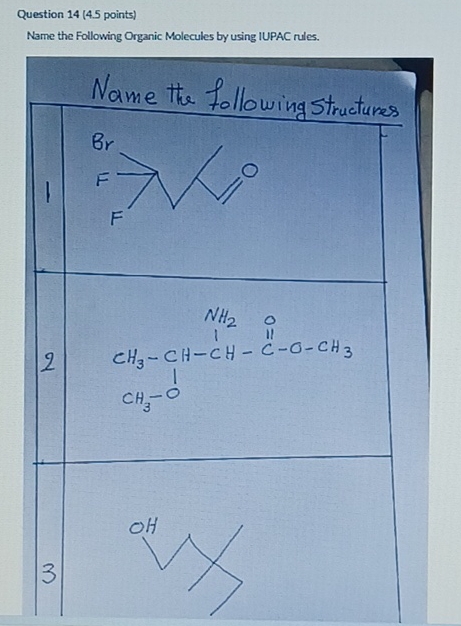 Question 14 (4.5 points)
Name the Following Organic Molecules by using IUPAC rules.
Name the following structures
Br
O
1
F
F
NH2 O
2
CH3-CH-CH-C-O-CH3
CH3-O
OH
3